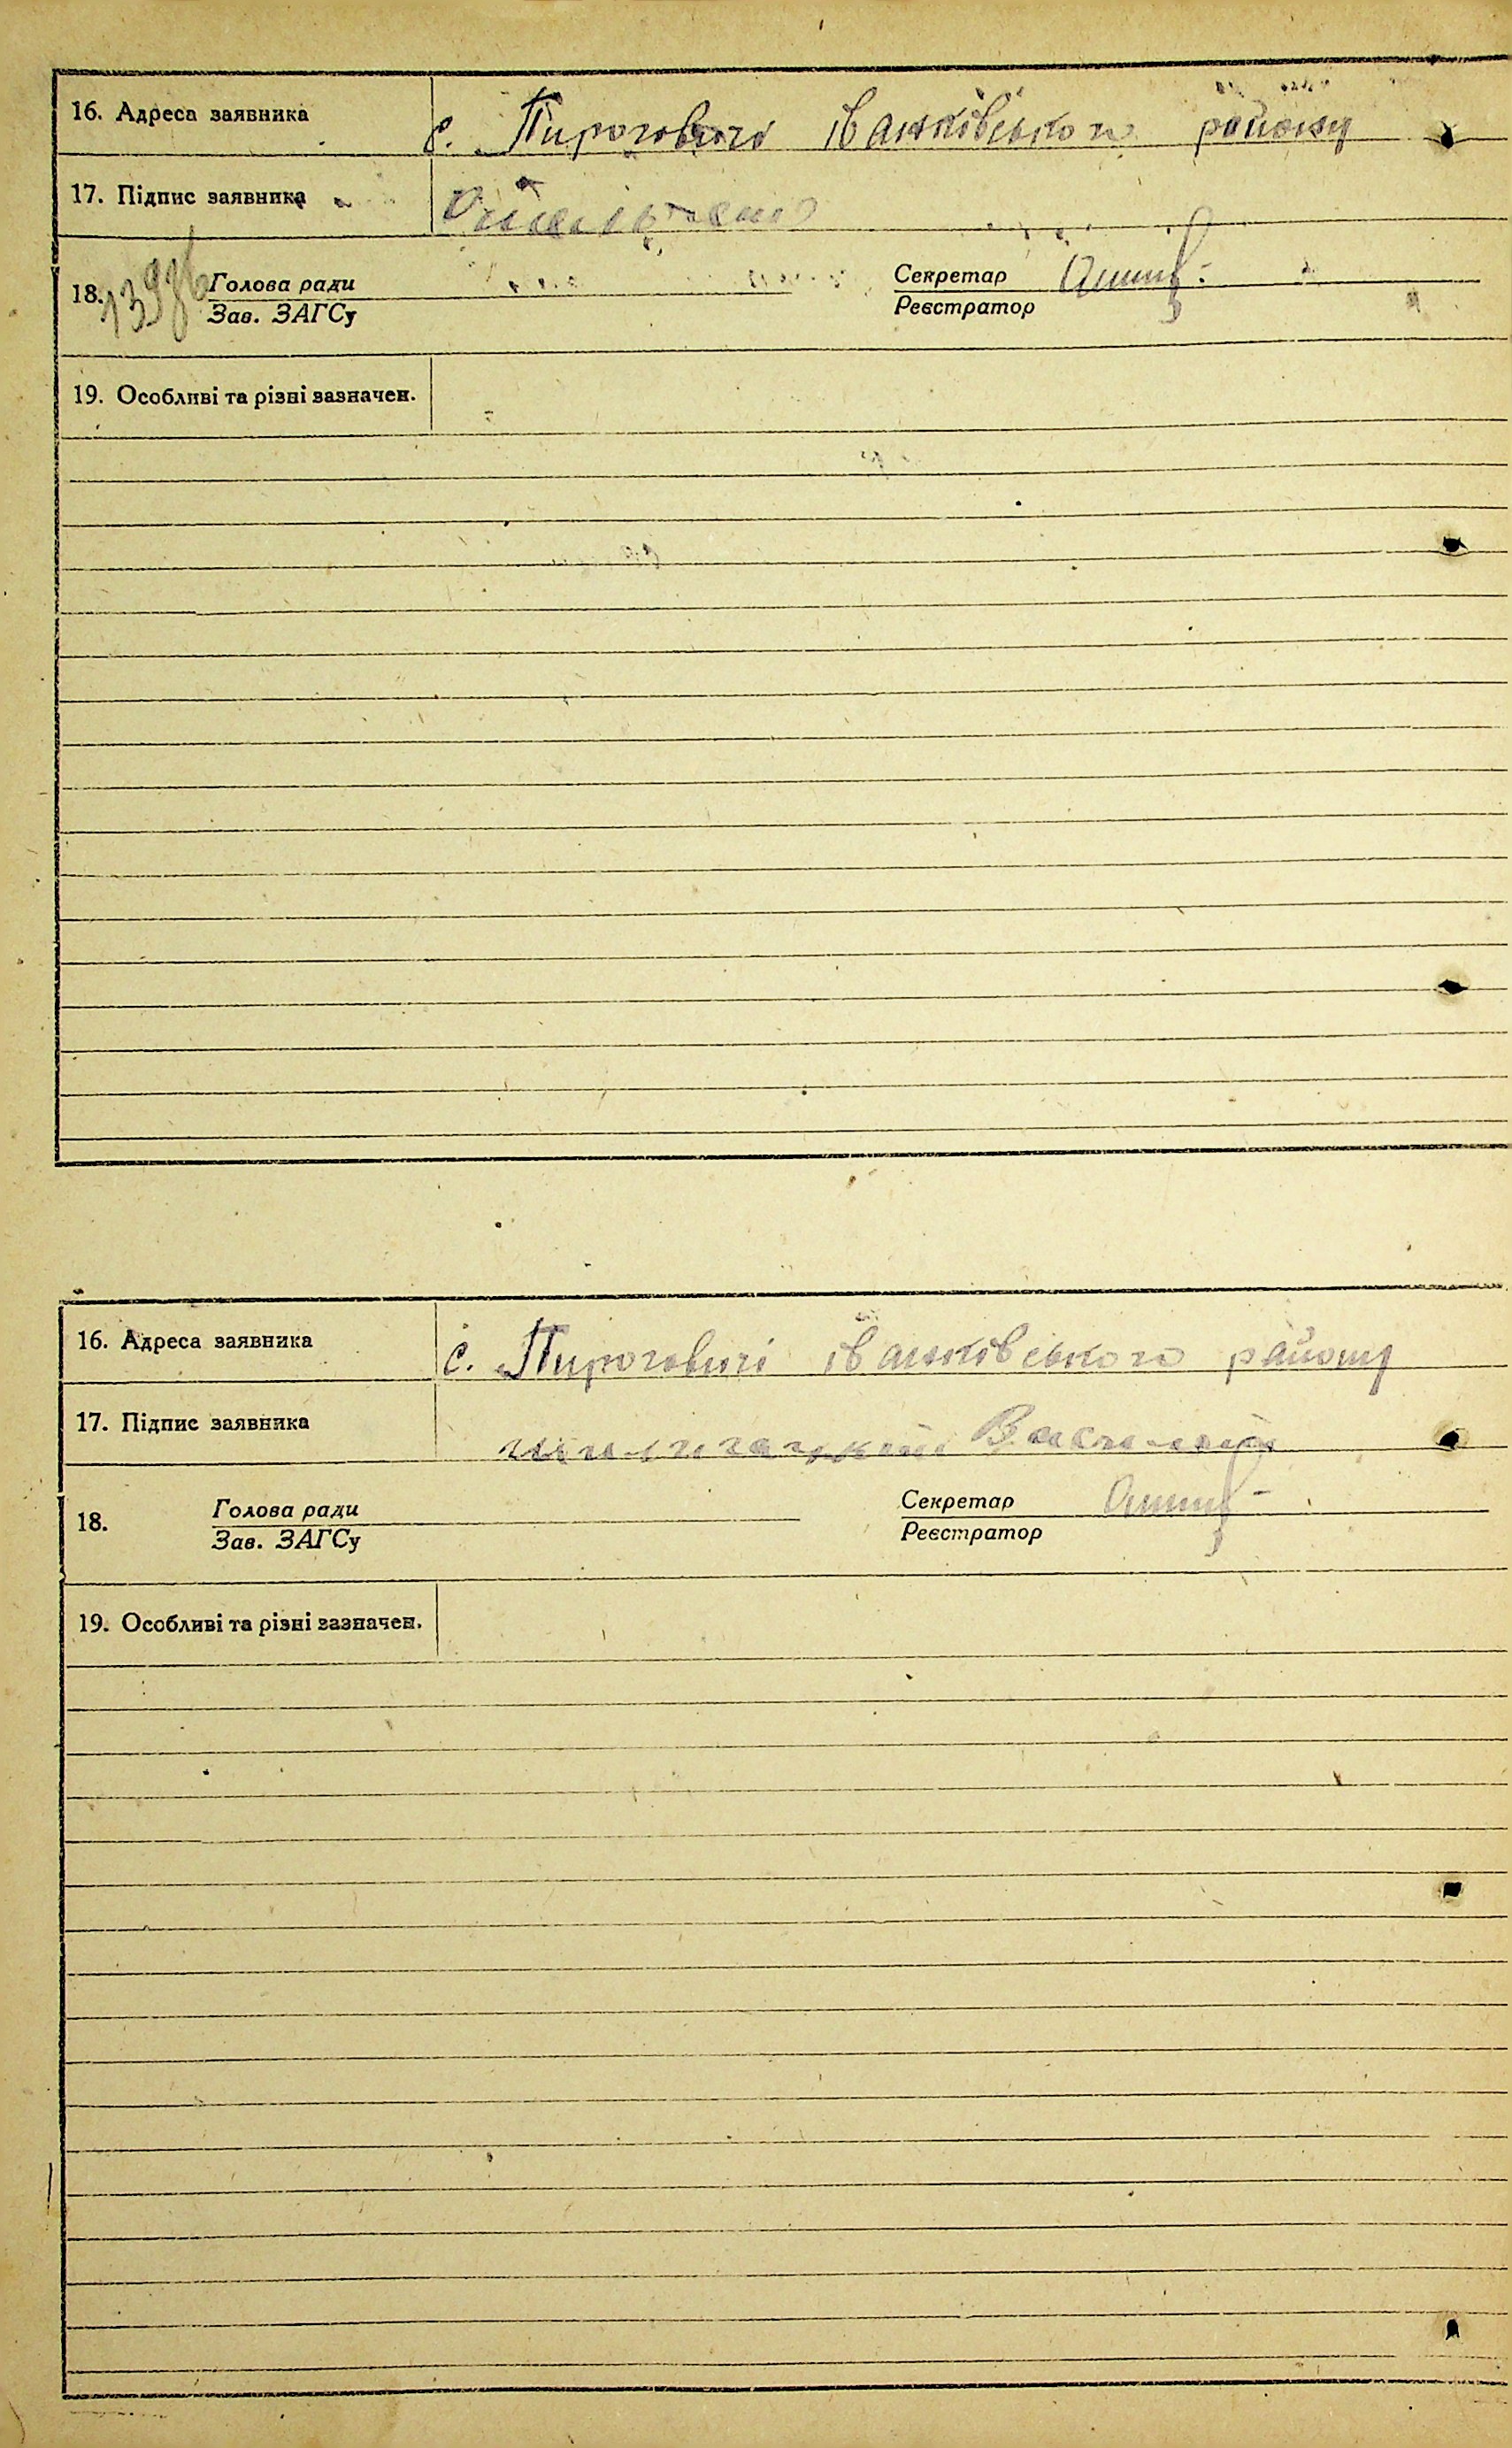 16. Адреса заявника с. Пироговичі іванківського району
17. Підпис заявника
18. Голова ради Секретар
Зав. ЗАГСу Реєстратор
19. Особливі та різні зазначен.
16. Адреса заявника с. Пироговичі іванківського району
17. Підпис заявника
18. Голова ради Секретар
Зав. ЗАГСу Реєстратор
19. Особливі та різні зазначен.